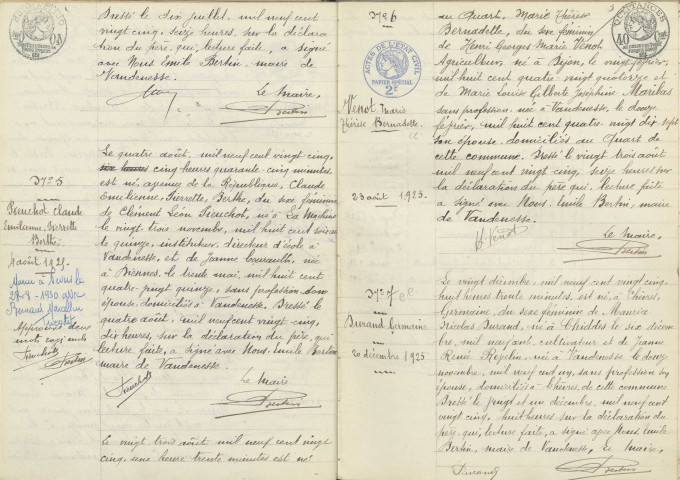 Dressé le dix juillet, mil neuf cent
vingt cinq, seize heures, sur la déclara
tion du père qui, lecture faite, a signé
avec Nous Emile Bertin, maire de
Vandenesse.
Le Maire,
Bertin
N°5
Pieuchot Claude
Emilienne, Pierrette
Berthe
4 août 1925.
Marié à Nevers le
1950 avec
Fernand Marcelin
Approuvé deux
mots rayés nuls
Pieuchot
Bertin
Le quatre août, mil neuf cent vingt cinq,
six heures cinq heures quarante-cinq minutes,
est né, agence de la République, Claude
Emilienne, Pierrette, Berthe, du sexe féminin
de Clément Léon Pieuchot, né à La Machine
le vingt trois novembre, mil huit cent soixan
te quinze, instituteur, directeur d'école à
Vandenesse, et de Jeanne née
à Biennes, le trente mai, mil huit cent
quatre vingt quinze, sans profession son
épouse, domiciliés à Vandenesse. Dressé le
quatre août, mil neuf cent vingt cinq,
dix heures, sur la déclaration du père, qui
lecture faite, a signé avec Nous, Emile Bertin
maire de Vandenesse.
Le Maire
Pieuchot
Bertin
Le vingt trois août mil neuf cent vingt
cinq, une heure trente minutes est né
N°6
ACTES DE L'ETAT CIVIL
PAPIER SPECIAL
2e
Venot Marie
Thérèse Bernadette
23 août 1925.
au Quart, Marie Thérèse
Bernadette, du sexe féminin
de Henri Georges Marie Venot
Agriculteur, né à Dijon, le vingt février,
mil huit cent quatre vingt quatorze et
de Marie Louise Gilberte Joséphine
sans profession née à Vandenesse, le douze
février, mil huit cent quatre vingt dix sept
son épouse, domiciliés au Quart de
cette commune. Dressé le vingt trois août
mil neuf cent vingt cinq, seize heures sur
la déclaration du père qui, lecture faite
a signé avec Nous, Emile Bertin, maire
de Vandenesse.
Le Maire,
H. Venot
Bertin
N°7
Durand Germaine
20 décembre 1925
Le vingt décembre, mil neuf cent vingt cinq
huit heures trente minutes, est né, à
Germaine, du sexe féminin de Maurice
Nicolas Durand, né à Chiddes le six décem
bre, mil neuf cent, cultivateur et de Jeanne
Renée née à Vandenesse le douze
novembre, mil neuf cent un, sans profession son
épouse, domiciliés à de cette commune
Dressé le vingt et un décembre, mil neuf cent
vingt cinq, huit heures sur la déclaration du
père qui, lecture faite, a signé avec Nous, Emile
Bertin, maire de Vandenesse, Le Maire,
Durand
Bertin